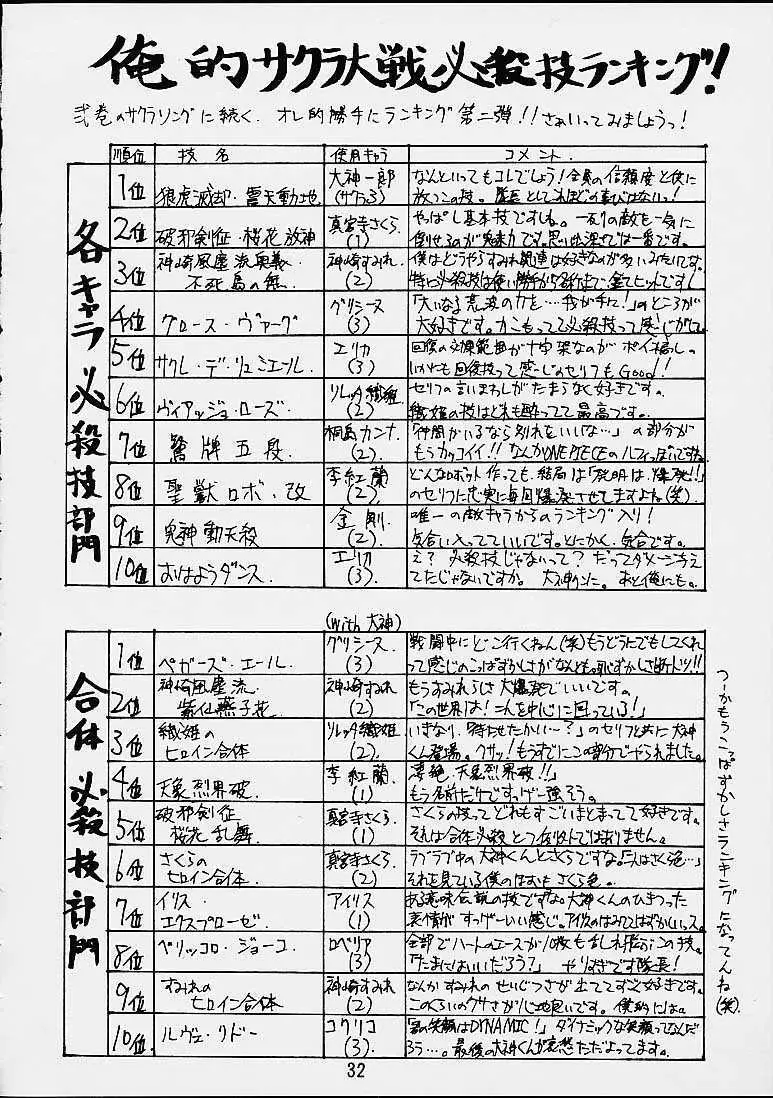 俺的サクラ大戦必殺技ランキング!
弐巻のサクラソングに続く、オレ的勝手にランキング第二弾!!さぁいってみましょうっ!
各キャラ必殺技部門
順位 技名 使用キャラ コメント.
1位 狼虎滅却・震天動地 大神一郎 (サクラ3) なんといってもコレでしょう!全員の信頼度と共に
放つこの技。隊長としてこれほどの喜びはないっ!
2位 破邪剣征・桜花放神 真宮寺さくら (1) やっぱし基本技ですしね。一列の敵も一気に
倒せるのが魅力です。思い出深さでは一番です。
3位 神崎風塵流奥義・不死鳥の舞 神崎すみれ (2) 僕はどうやらすみれ関連は好きなのが多いみたいです。
特に必殺技は使い勝手から名前まで全てヒットです!
4位 グロース・ヴァーグ グリシーヌ (3) 「大いなる荒波の力を…我が手に!」のところが
大好きです。力こもってて必殺技って感じがして。
5位 サクレ・デ・リュミエール エリカ (3) 回復の効果範囲が十字架なのがポイント高しの
いかにも回復技って感じのセリフもGood!
6位 ヴィアッジョ・ローズ ソレッタ織姫 (2) セリフの言いまわしがたまらなく好きです。
織姫の技はどれも酔ってて最高です。
7位 鷲牌五段 桐島カンナ (2) 「仲間がいるなら別れをいいな…」の部分が
もうカッコイイ!!なんかONE PIECEのルフィっぽいですね
8位 聖獣ロボ・改 李紅蘭 (2) どんなロボット作っても、結局は「発明は、爆発!!」
のセリフに忠実に毎回爆発させてますよね(笑)
9位 鬼神動天殺 金剛 (2) 唯一の敵キャラからのランキング入り!
気合い入ってていいです。とにかく、気合です。
10位 おはようダンス エリカ (3) え?必殺技じゃないって?だってダメージ与え
てたじゃないですか。大神クンに。あと俺にも。
合体必殺技部門
(with 大神)
1位 ペガーズ・エール. グリシーヌ (3) 戦闘中にどこ行くねん(笑)もうどうにでもしてくれ
って感じのこっぱずかしさがなんとも。恥ずかしさ断トツ!!
2位 神崎風塵流 紫仙燕子花 神崎すみれ (2) もうすみれらしさ大爆発でいいです。
「この世界は!二人を中心に回っている!」
3位 織姫のヒロイン合体 ソレッタ織姫 (2) いきなり、「待たせたかい〜?」のセリフと共に大神
くん登場。クサッ!もうすでにこの部分でやられました。
4位 天象烈界破. 李紅蘭 (1) 「凄絶、天象烈界破!!」
もう名前だけですっげー強そう。
5位 破邪剣征 桜花乱舞 真宮寺さくら (1) さくらの技ってどれもすごいまとまってて好きです。
それは合体必殺とて例外ではありません。
6位 さくらのヒロイン合体. 真宮寺さくら (2) ラブラブ中の大神くんとさくらですな。「二人はさくら色…」
それを見ている僕のほおもさくら色。
7位 イリス・エクスプローゼ アイリス (1) ある意味伝説の技ですな。大神くんのひきつった
表情がすっげーいい感じ。アイリスのはみてはずかしいっス。
8位 ペリッコロ・ジョーコ. ロベリア (3) 全部でハートのエースが10枚もまじれ飛ぶこの技。
「たまにはいいだろう?」 やりすぎです隊長!
9位 すみれのヒロイン合体 神崎すみれ (2) なんかすみれのせいじつさが出ててすごく好きです。
このくらいのクサさが心地良いです。僕的には。
10位 ルヴェ・リドー コクリコ (3). 「君の笑顔はDYNAMIC!」ダイナミックな笑顔ってなんだ
ろう…。最後の大神くんが哀愁ただよってます。
つーかもうこっぱずかしさランキングになってんね(笑)
32